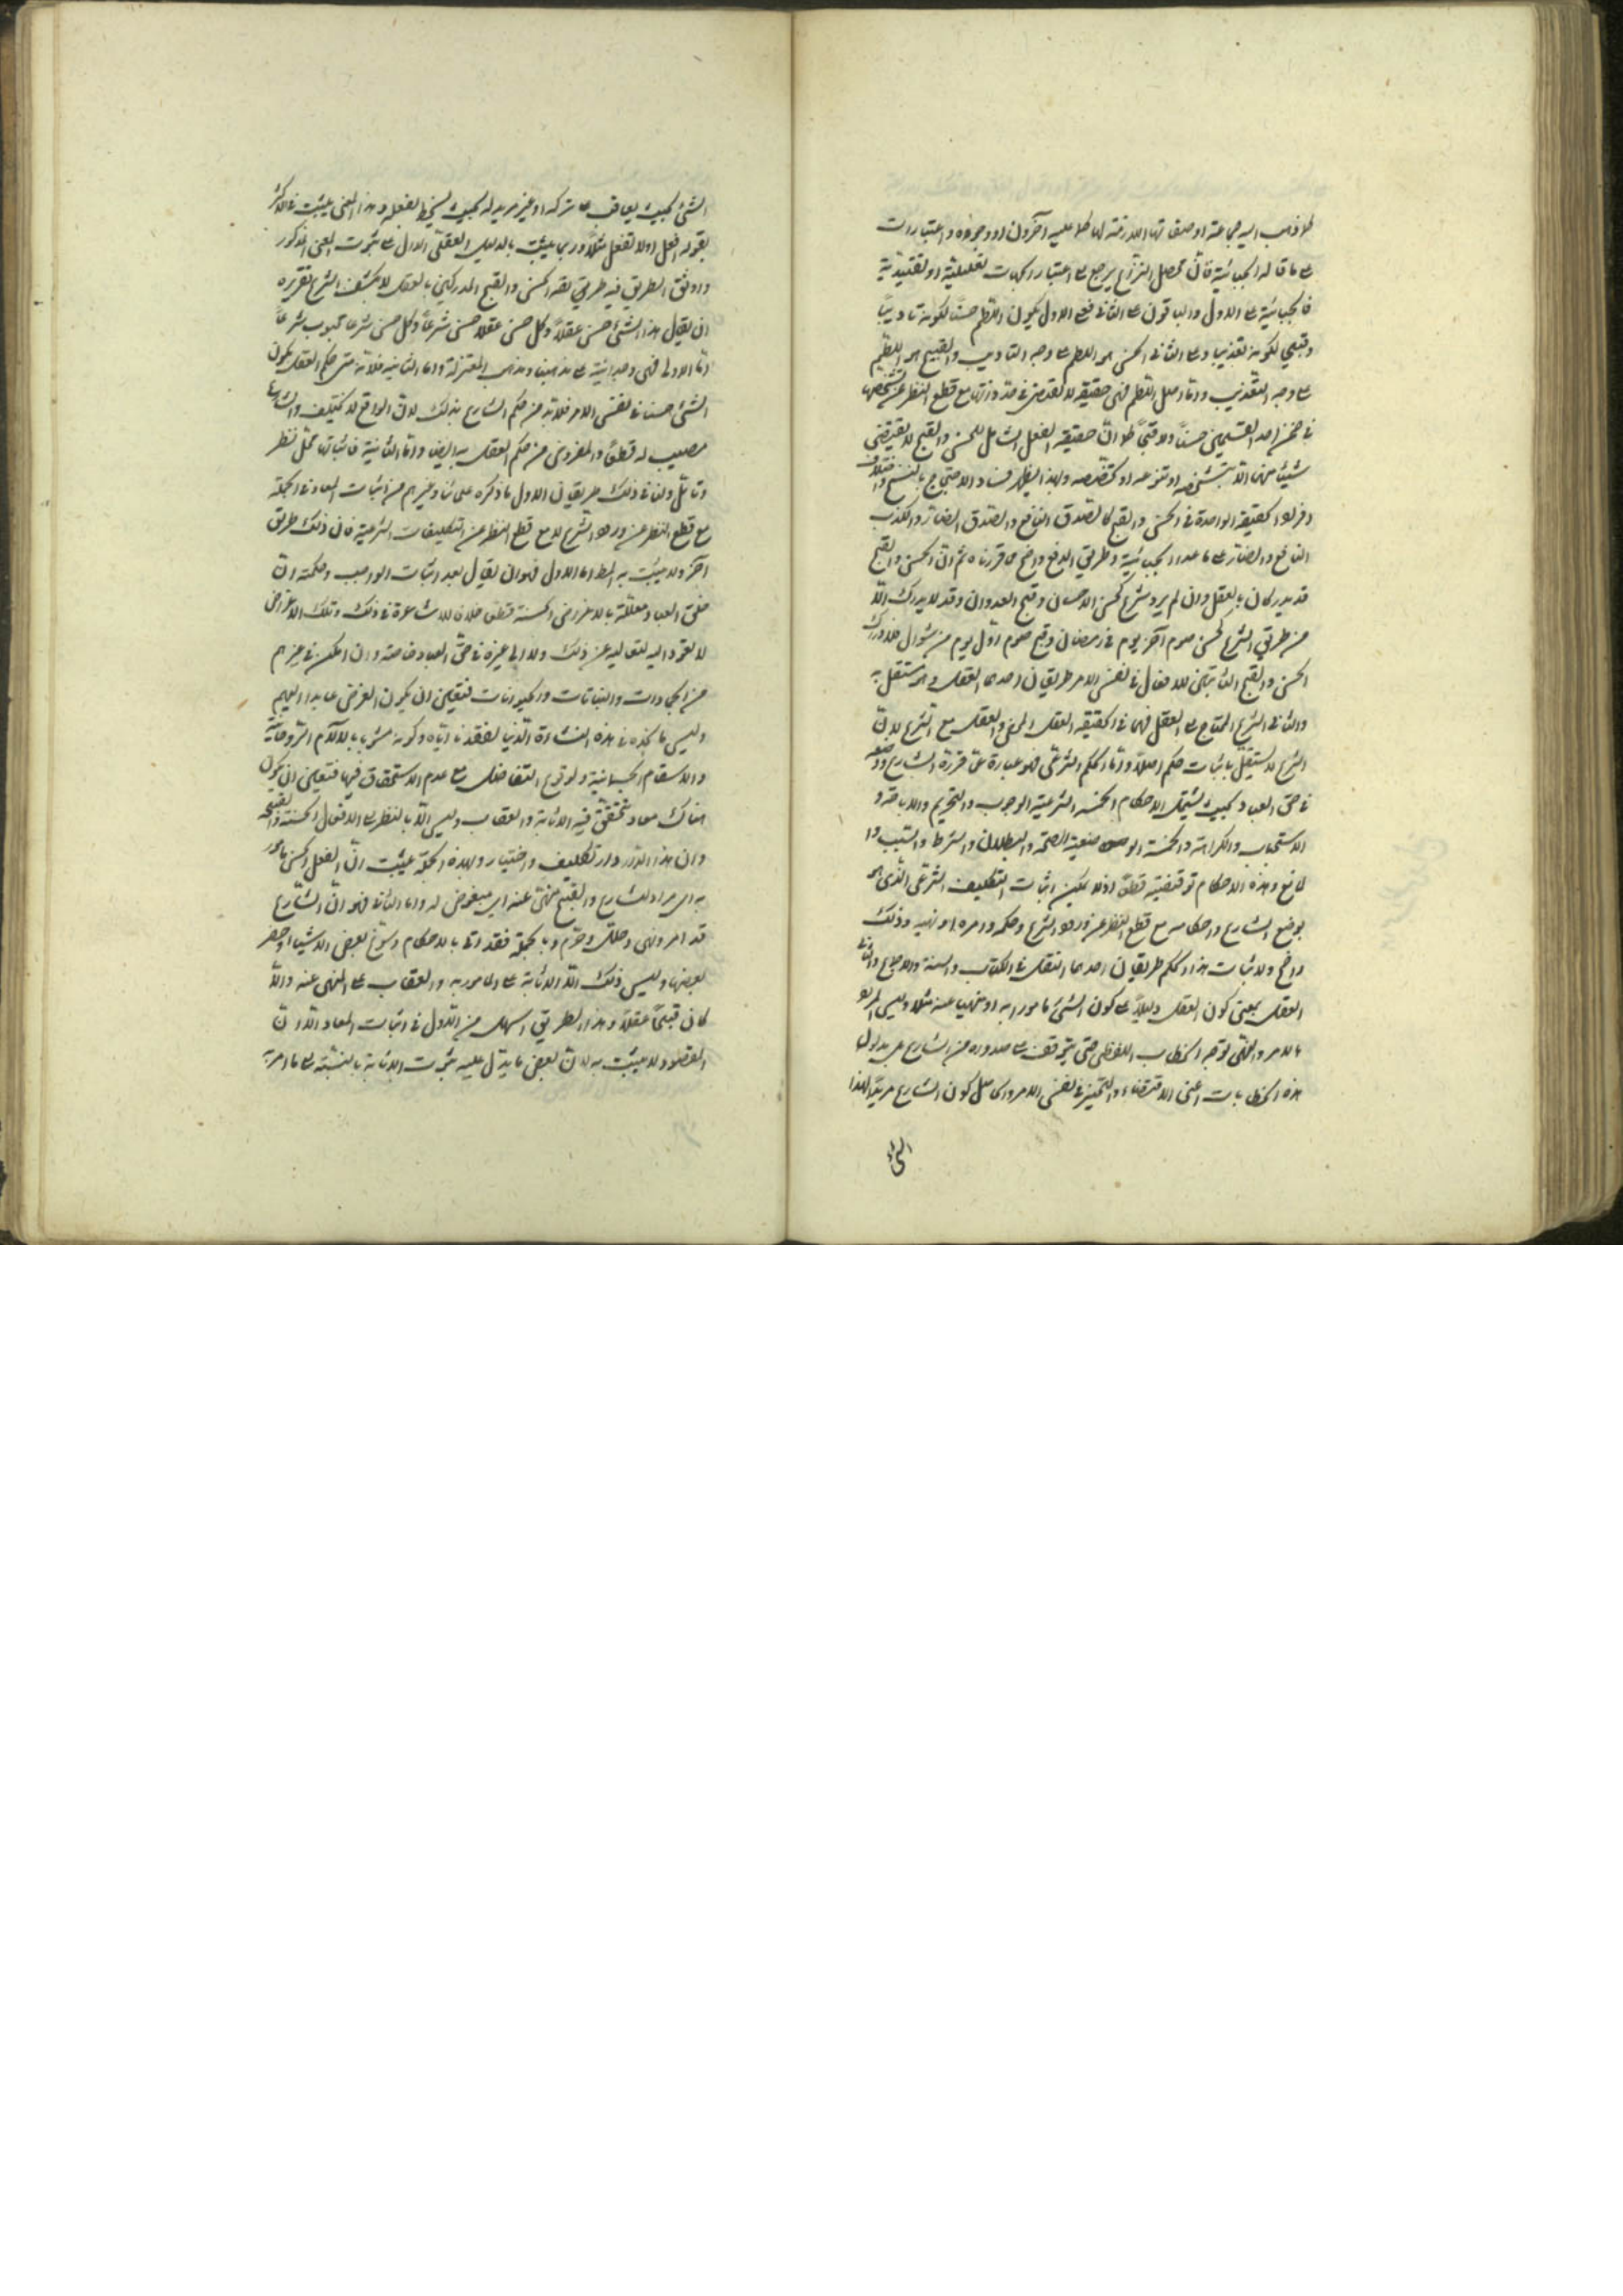 كما ذهب اليه جماعة او صفاتها اللازمة لها كما عليه آخرون او وجوه واعتبارات
على ما قاله الجبائية فانّ محصل النزاع يرجع الى اعتبار الجهات تعليلية او تقييدية
فالجبائية على الاول والباقون على الثاني فعلى الاول يكون اللطم حسنا لكونه تاديبا
وقبيحا لكونه تعذيبا وعلى الثاني الحسن هو اللطم على وجه التاديب والقبيح هو اللطم
على وجه التعذيب وامّا اصل اللطم فهي حقيقة لا تقتضى في حدّ ذاتها مع قطع النظر عن تشخصها
في ضمن احد القسمين حسناً ولا قبحاً كما انّ حقيقة الفعل الشامل للحسن والقبح لا يقتضى
شيئا منهما الا بتشخصه او تنوعه او تخصّصه وبهذا يظهر فساد الاحتجاج بالنسخ واختلاف
افراد الحقيقة الواحدة في الحسن والقبح كالصدق النافع والصدق الضارّ والكذب
النافع والضارّ على ما عدا الجبائية وطريق الدفع واضح مما قررناه ثم انّ الحسن والقبح
قد يدركان بالعقل وان لم يرد شرع كحسن الاحسان وقبح العدوان وقد لا يدرك الّا
من طريق الشرع كحسن صوم آخر يوم من رمضان وقبح صوم اوّل يوم من شوال فلادراك
الحسن والقبح الثابتين للافعال في نفس الامر طريقان احدهما العقل وهو مستقل به
والثاني الشرع المحتاج الى العقل فهما في الحقيقة العقل المحض والعقل مع الشرع لانّ
الشرع لا يستقلّ باثبات حكم اصلاً وامّا الحكم الشرعي فهو عبارة عمّا قرره الشارع ووضعه
في حق العباد بحيث يشمل الاحكام الخمسة الشرعية الوجوب والتحريم والاباحة و
الاستحباب والكراهة والخمسة الوضعية الصحة والبطلان والشرط والسبب وا
لمانع وهذه الاحكام توقيفية قطعاً اذ لا يمكن اثبات التكليف الشرعى الذى هو
بوضع الشارع واحكامه مع قطع النظر عن ورود الشرع وحكمه وامره او نهيه وذلك
واضح ولاثبات هذا الحكم طريقان احدهما النقل من الكتاب والسنة والاجماع والثاني
العقل بمعنى كون العقل دليلاً على كون الشئ مامورا به او منهيا عنه مثلا وليس المراد
بالامر والنهى توجه الخطاب اللفظى حتى يتوقف على صدوره من الشارع بل مدلول
هذه الخطابات اعنى الاقتضاء والتخيير في نفس الامر والحاصل كون الشارع مريدا لهذا
الشئ
الشئ بحيث يعاقب على تركه او غير مريد له بحيث يسخط بفعله وهذا المعنى يثبت في الاكثر
بقوله افعل او لا تفعل مثلاً وربما يثبت بالدليل العقلى الدال على ثبوت المعنى المذكور
واوثق الطريق فيه طريق لقه الحسن والقبح المدركين بالعقل لا بكشف الشرع تقريره
ان يقال هذا الشئ حسن عقلاً وكل حسن عقلاً حسن شرعاً وكل حسن شرعاً محبوب شرعاً
امّا الاولى فهى وجدانية على مذهبنا ومذهب المعتزلة وامّا الثانية فلانّه متى حكم العقل بكون
الشئ حسنا في نفس الامر فلا بدّ من حكم الشارع بذلك لانّ الواقع لا يختلف والشارع
مصيب له قطعاً والمفروض من حكم العقل به ايضا وامّا الثانية فاثباتها محلّ نظر
وتامّل ولنا في ذلك طريقان الاول ما ذكره علمائنا وغيرهم من اثبات المعاد في الجملة
مع قطع النظر عن ورود الشرع لا مع قطع النظر عن التكليفات الشرعية فان ذلك طريق
آخر ولا يثبت به المط اما الاول فهو ان يقال بعد اثبات الواجب وحكمته انّ
خلق العباد معللة بالاغراض الحسنة قطعا خلافا للاشاعرة في ذلك وتلك الاغراض
لا تعود اليه لتعاليه عن ذلك ولا الى غيره في حق العباد خاصة وان امكن في غيرهم
من الجمادات والنباتات والحيوانات فتعين ان يكون الغرض عايدا اليهم
وليس ما نجده في هذه النشاءة الدّنيا لفقدنا ايّاه وكونه مشوبا بالآلام الروحانية
والاسقام الجسمانية ولوقوع التفاضل مع عدم الاستحقاق فيها فتعين ان يكون
هناك معاد يتحقق فيه الاثابة والعقاب وليس الّا بالنظر الى الافعال الحسنة والقبيحة
وان هذا الدار دار تكليف واختيار وبهذه الجملة يثبت انّ الفعل الحسن مامور
به اى مراد للشارع والقبيح منهىّ عنه اى مبغوض له واما الثاني فهو انّ الشارع
قد امر ونهى وحلّل وحرّم وبالجملة فقد اتى بالاحكام وسوّغ بعض الاشياء وحظر
بعضها وليس ذلك الّا للاثابة على المامور به والعقاب على المنهى عنه والّا
كان قبيحاً عقلاً وهذا الطريق اسهل من الاول في اثبات المعاد الّا انّ
المقصود لا يثبت به لانّ بعض ما يدل عليه ثبوت الاثابة بالنسبة الى ما امر به